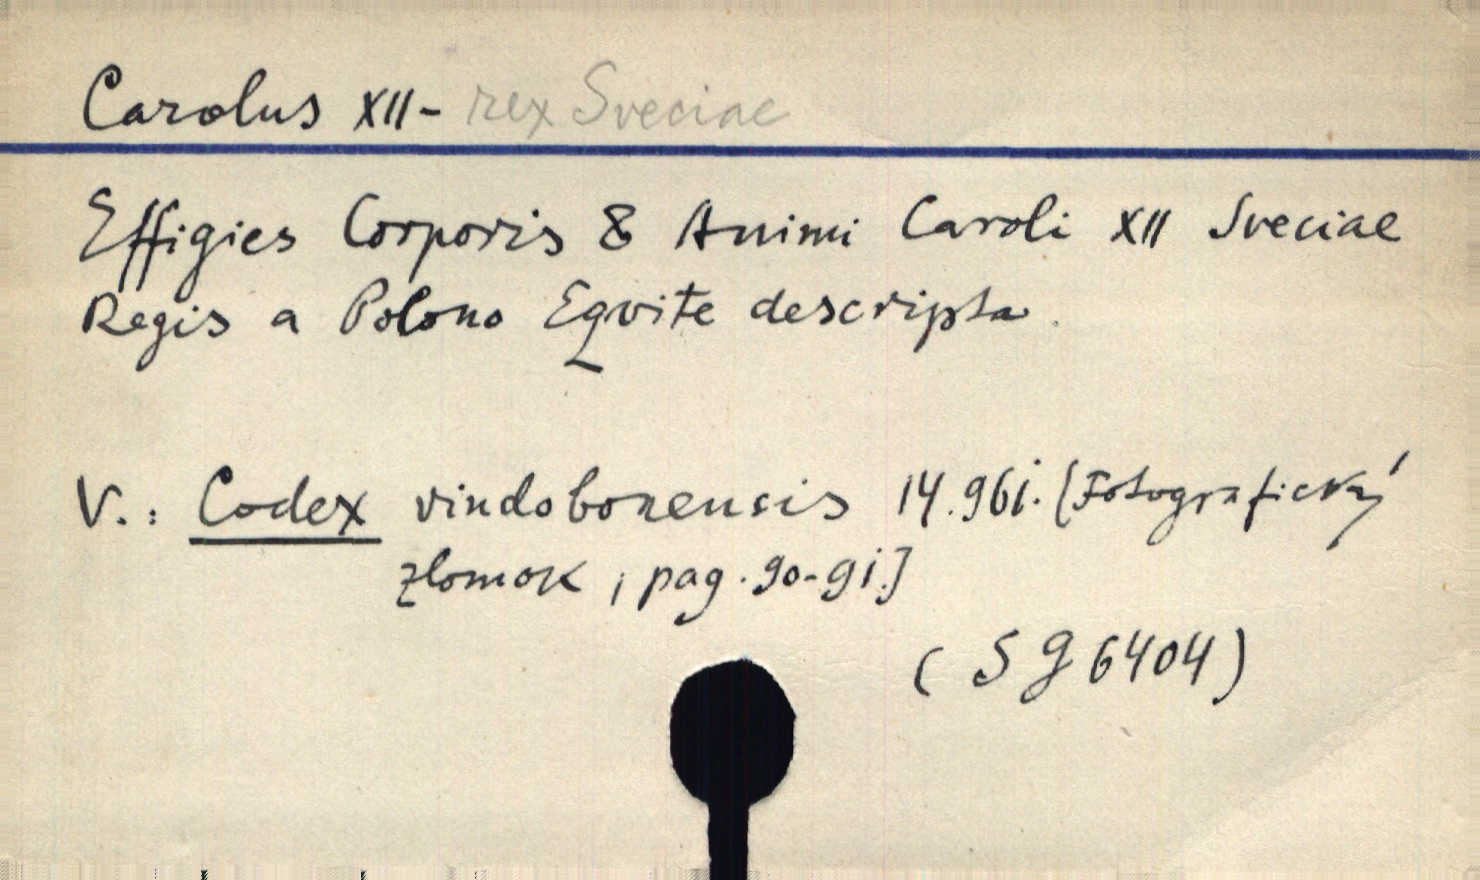 Carolus XII - rex Sveciae
Effigies Corporis & Animi Caroli XII Sveciae
Regis a Polono Eqvite descripta.
V.: Codex vindobonensis 14.961. [Fotografický
zlomok, pag. 90-91.]
(SG 6404)